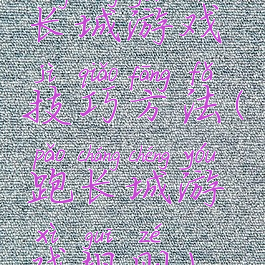 长城游戏
jì qiǎo fāng fǎ
技巧方法(
pǎo cháng chéng yóu
跑长城游
xì guī zé
戏规则)